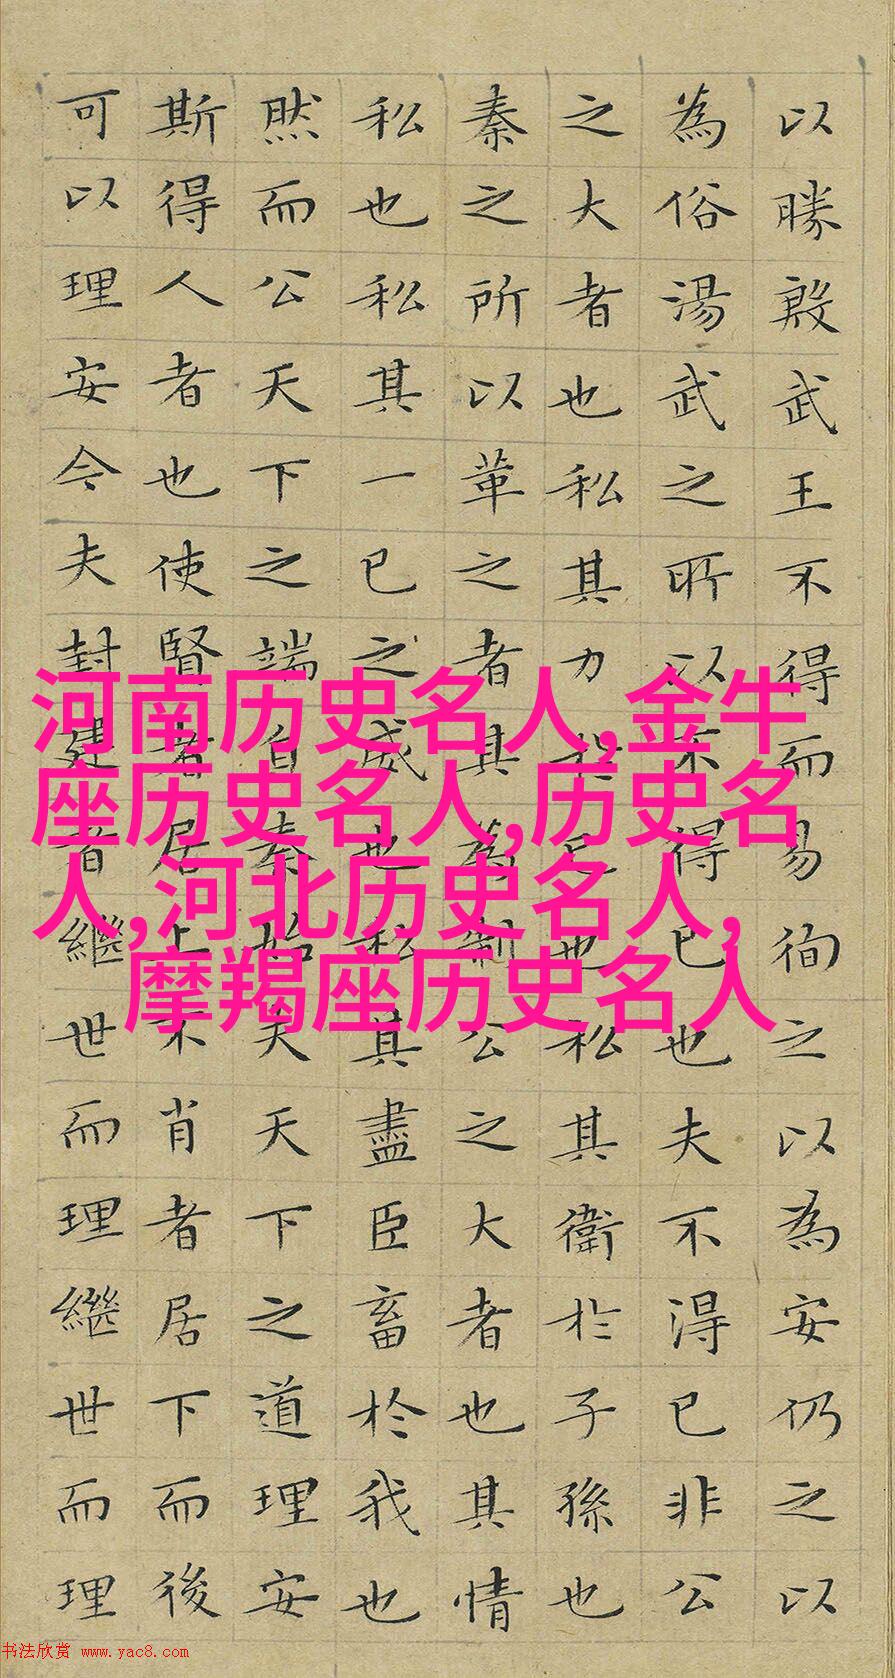 以勝殷武王不得而易徇之以為安仍之以
為俗湯武之所以不得已也夫不得已非公
之大者也私其力於已也私其衛於子孫也
秦之所以革之者其為制公之大者也其情
私也私其一已之威也私其盡臣畜於我也
然而公天下之端自秦始夫天下之道理安
斯得人者也使賢者居上不肖者居下而後
可以理安今夫封建者繼世而理繼世而理
河南历史名人,金牛
座历史名人,历史名
人,河北历史名人,
摩羯座历史名人
书法欣赏 www.yac8.com